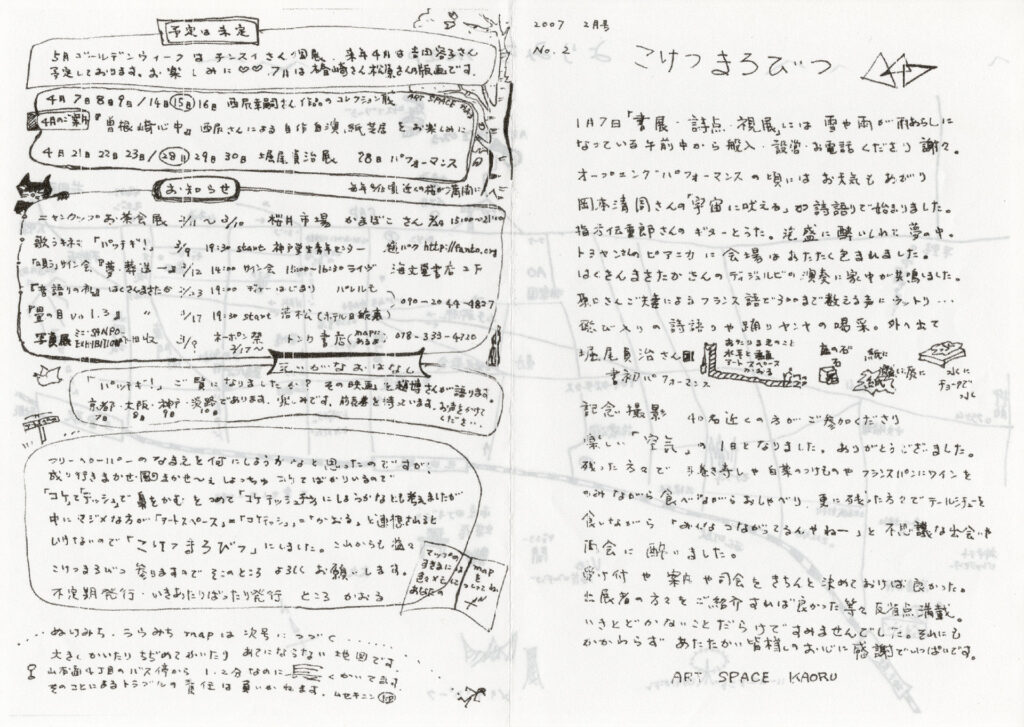 2007 2月号
No.2
こけつまろびつ
1月7日「書展・詩点・視展」には 雪や雨が雨あらしに
なっている午前中から搬入・設営・お電話くださり 謝々。
オープニングパフォーマンスの頃には お天気も あがり
岡本清周さんの「宇宙に吠える」が詩語りで始まりました。
さんのギターとうた。泡盛に酔いしれて 夢の中。
トヨヤンさんのピアニカに会場はあたたく包まれました。
はくさんまさたかさんのディジュリドゥの演奏に家中が共鳴しました。
さんご夫妻によるフランス語で300まで数える声にウットリ…
飛び入りの詩語りや踊りヤンヤの喝采。外へ出て
堀尾貞治さん
書初パフォーマンス
あたりまえのこと
水平と垂直
アートスペース
かおる
紙に
水に
チョークで
水
記念撮影 40名近くの方がご参加くださり
楽しい「空気」の1日となりました。ありがとうございました。
残った方々で 巻き寿しや白菜のつけものやフランスパンにワインを
のみながら食べながらおしゃべり 更に残った方々でテールシチューを
食いながら「みんなつながってるんやねー」と不思議な出会いや
再会に 酔いました。
受け付や案内や司会をきちんと決めておけば良かった。
出展者の方々をご紹介すれば良かった等々反省点満載。
いきとどかないことだらけですみませんでした。それにも
かかわらず あたたかい皆様のお心に感謝でいっぱいです。
ART SPACE KAORU
予定は未定
5月ゴールデンウィークは チンスイさん個展、来年4月は吉田容子さん
予定しております。お楽しみに♡♡ 7月は椿崎さん松原さんの版画です。
4月のご案内
4月7日8日9日/14日15日16日 西辰幸嗣さん作品のコレクション展
『曽根崎心中』西辰さんによる自作自演、紙芝居をお楽しみに
4月21日22日23日/28日29日30日 堀尾貞治展 28日パフォーマンス
ART SPACE
お知らせ
毎年 近くの桜が満開に
ニャンウップお茶会展 2/11〜3/10 桜井市場 かまぼこさん 15:00〜21:00
歌うキネマ「パッチギ!」 3/9 19:30 start 神戸学生青年センター http://fanto.org
サイン会『夢・葬送』 2/12 14:00 サイン会 15:00〜16:30 ライヴ 海文堂書店2F
『昔語りの礼』はくさんまさたか 2/23 19:00 ディナーはじまり パレルモ
『昼の月 Vol.3』 〃 2/17 19:30 start 若松(ホテル日航裏)
090-2044-4827
写真展 ミニSANPO EXHIBITION 3/9 ネーポン祭 2/17〜 トンカ書店(mapにあるよ) 078-333-4720
えいがなおはなし
「パッチギ!」ご覧になりましたか? その映画を趙博さんが語ります。
京都・大阪・神戸・淡路であります。楽しみです。前売券を待っています。お声をかけて
7日 8日 9日 10日 くださ…
フリーペーパーのなまえを何にしようかなと思ったのですが、
成り行きまかせ・風まかせ〜え しょっちゅう こけてばかりいるので
「コケてティッシュで鼻をかむ」をつめて「コケティッシュ」にしようかなとも考えましたが
中にマジメな方が「アートスペース」=「コケティッシュ」=「かおる」と連想すると
いけないので「こけつまろびつ」にしました。これからも 益々
こけつまろびつ 参りますので そこのところ よろしくお願いします。
不定期発行・いきあたりばったり発行 ところ かおる
マップの
すきまには
色々メモに
あなたの
mapを
つくってね
ぬけみち、うらみちmapは次号につづく
大きくかいたり ちぢめてかいたり あてにならない地図です。
山本通4丁目のバス停から1.2分なのに 長くかいてます
そのことによるトラブルの責任は負いかねます。ムセキニン